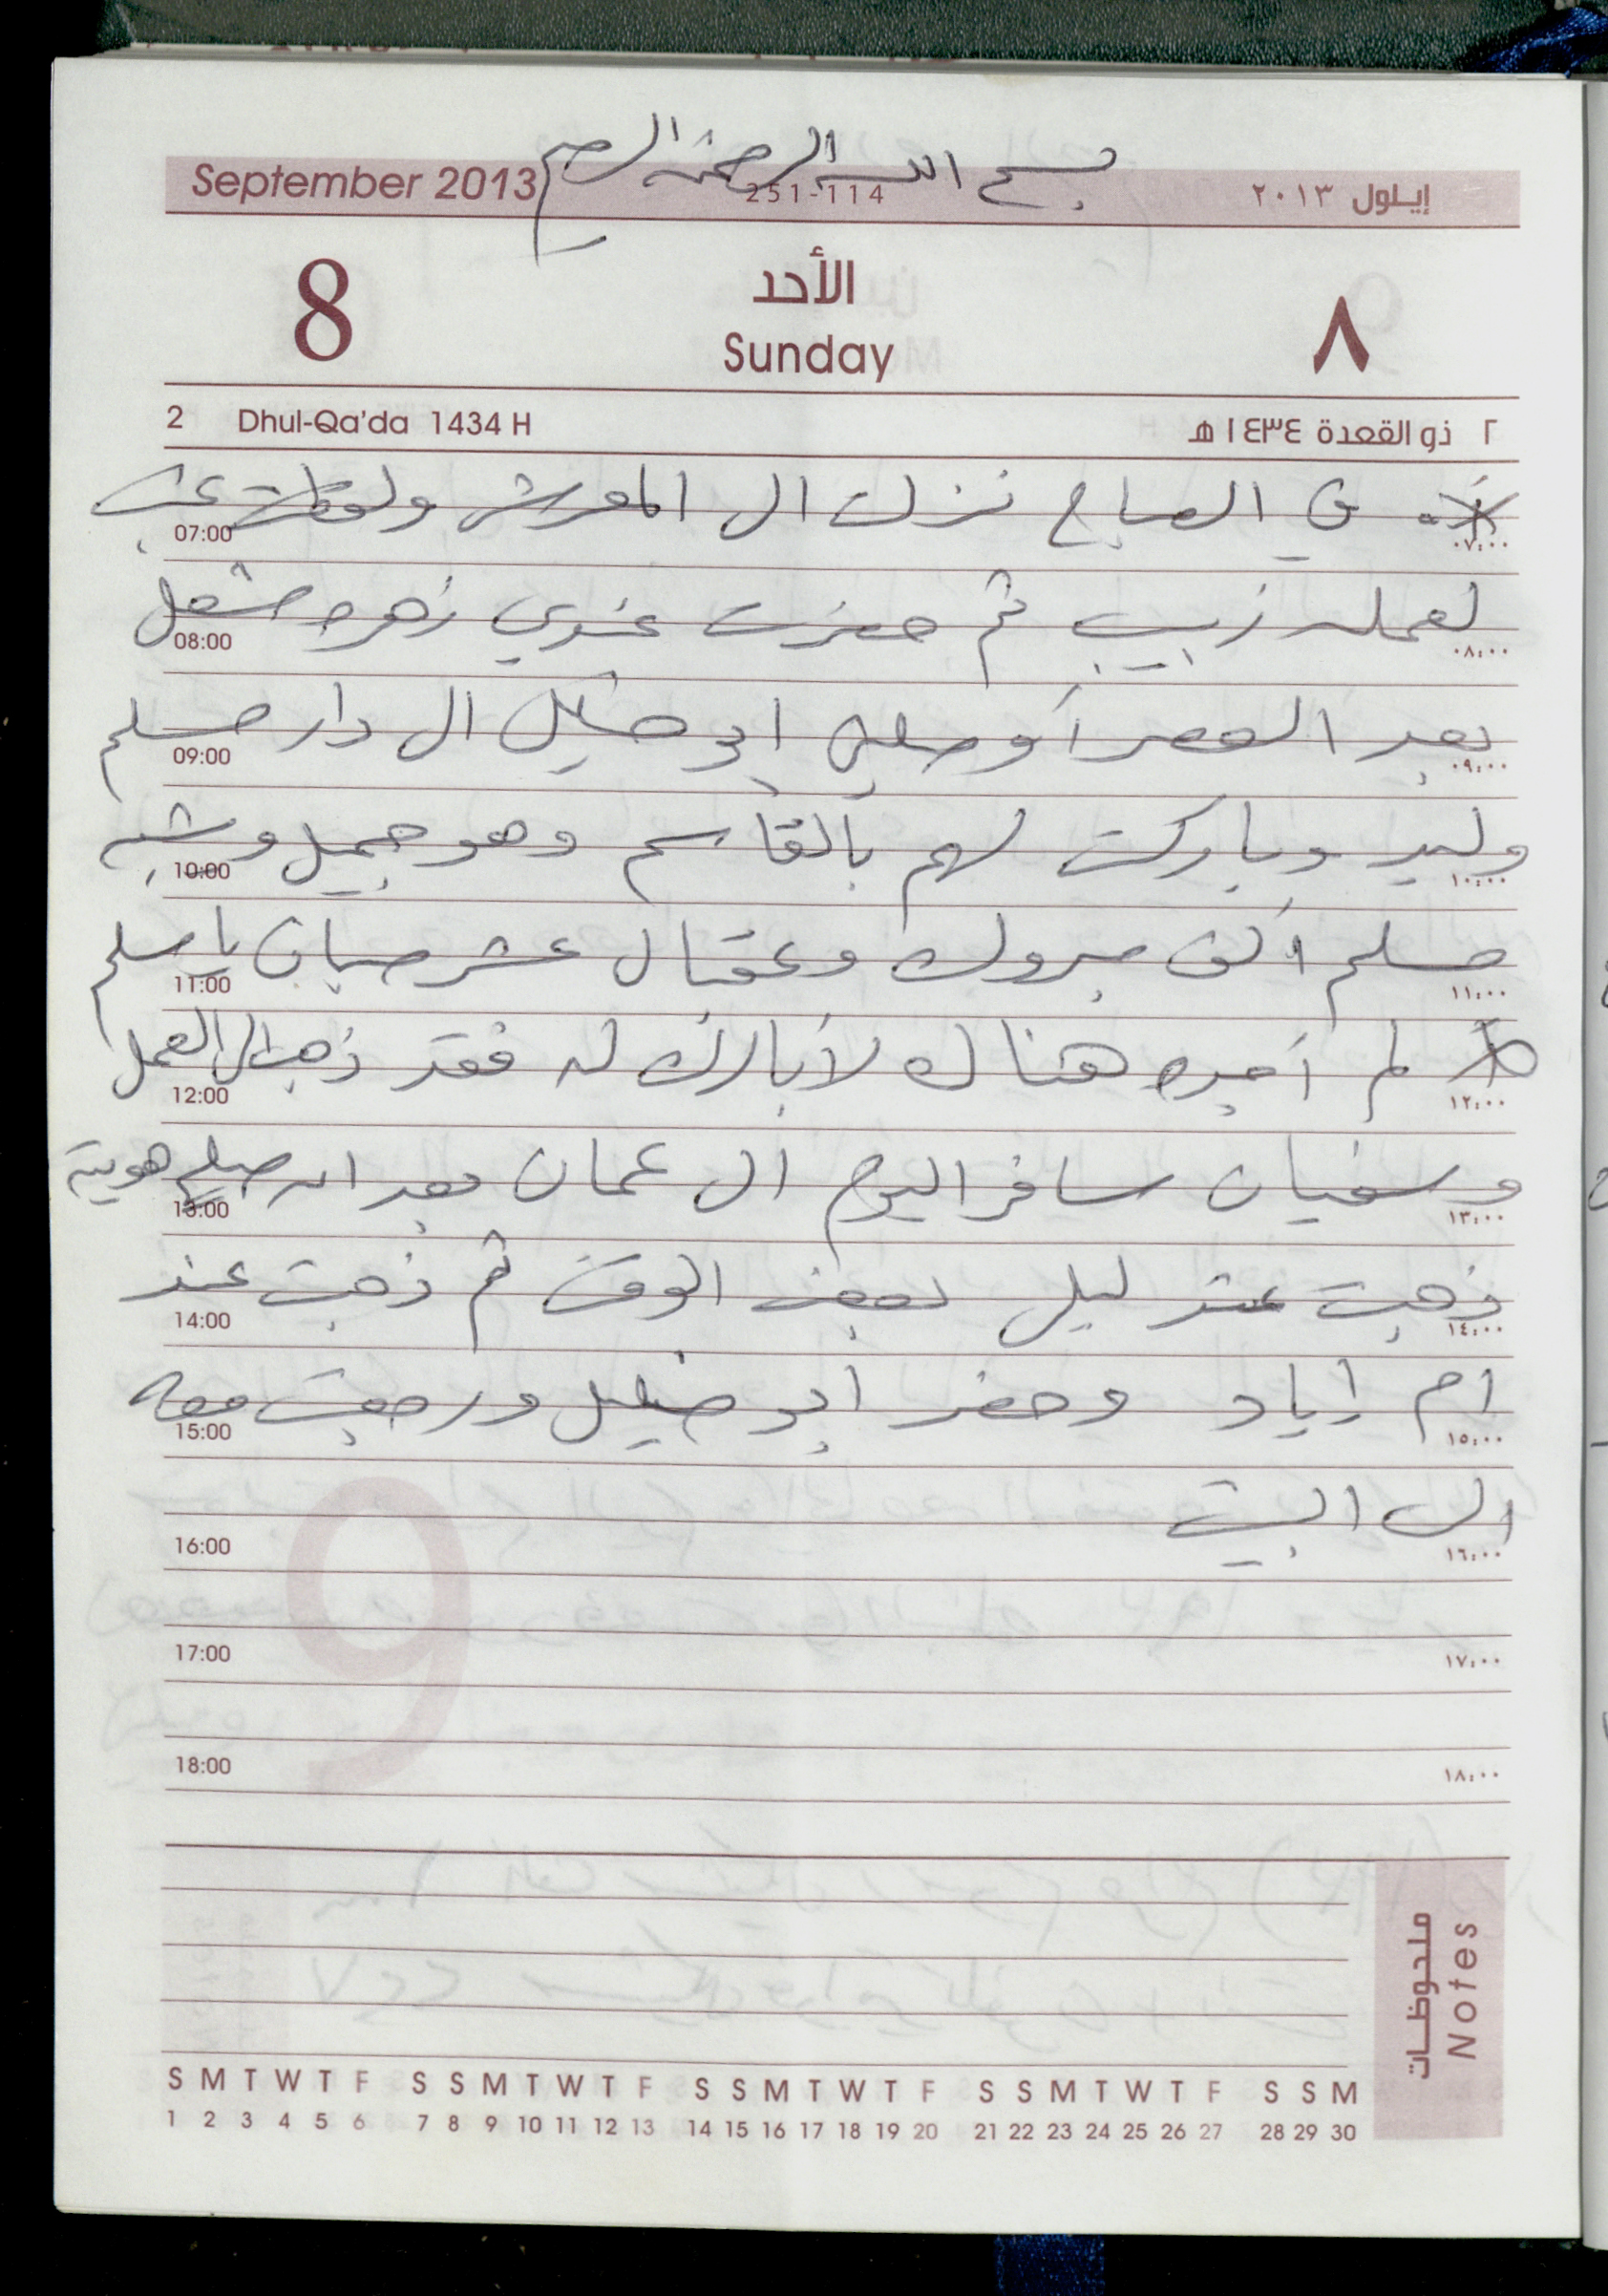 بسم الله الرحمن الرحيم
September 2013 251-114 إيلول ٢٠١٣
8 الأحد ٨
Sunday
2 Dhul-Qa'da 1434 H ٢ ذو القعدة ١٤٣٤ هـ
في الصباح نزلت الى المعرش ولقطت عنب
07:00 ٠٧:٠٠
لعمله زبيب ثم حضرت عندي زهره مشعل
08:00 ٠٨:٠٠
بعد العصر أوصلني ابو خليل الى دار مسلم
09:00 ٠٩:٠٠
وليد وباركت لهم بالقاسم وهو جميل وشبه
10:00 ١٠:٠٠
مسلم ألف مبروك وعقبال عشر صبيان يا مسلم
11:00 ١١:٠٠
لم أجده هناك لأبارك له فقد ذهب الى العمل
12:00 ١٢:٠٠
وسفيان سافر اليوم الى عمان بعد ان هوية
13:00 ١٣:٠٠
ذهبت عند ليلى بعض الوقت ثم ذهبت عند
14:00 ١٤:٠٠
ام إياد وحضر ابو خليل ورجعت معه
15:00 ١٥:٠٠
الى البيت
16:00 ١٦:٠٠
17:00 ١٧:٠٠
18:00 ١٨:٠٠
ملحوظات
Notes
S M T W T F S S M T W T F S S M T W T F S S M T W T F S S M
1 2 3 4 5 6 7 8 9 10 11 12 13 14 15 16 17 18 19 20 21 22 23 24 25 26 27 28 29 30